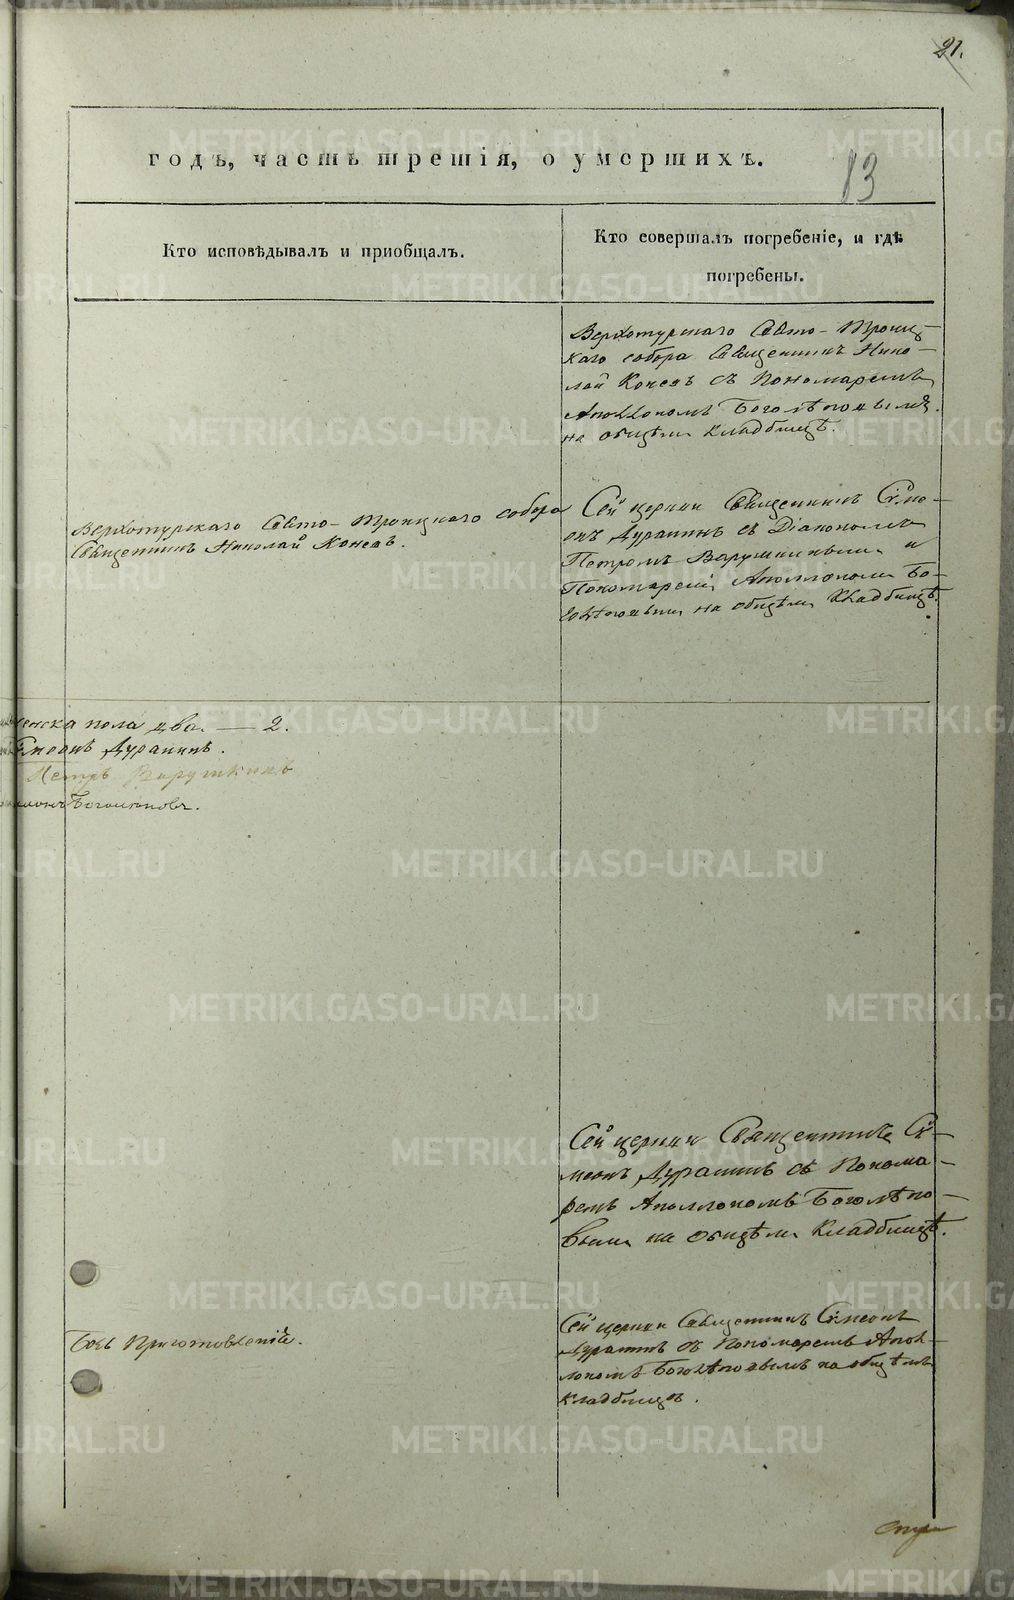 21.
годъ, часть третія, о умершихъ.
13
Кто исповѣдывалъ и приобщалъ.
Кто совершалъ погребеніе, и гдѣ
погребены.
Верхотурскаго Свято-Троиц-
каго собора Священникъ Нико-
лай Коневъ съ Пономаремъ
Аполлономъ Боголѣповымъ
на общемъ кладбищѣ.
Верхотурскаго Свято-Троицкаго собора
Священникъ Николай Коневъ.
Сей церкви Священникъ Сѵме-
онъ Дурапинъ съ Діакономъ
Петромъ Варушкинымъ и
Пономаремъ Аполлономъ Бо-
голѣповымъ на общемъ кладбищѣ.
женска пола два. — 2.
Сѵмеонъ Дурапинъ.
Петръ Варушкинъ
Боголѣповъ.
Сей церкви Священникъ Сѵ-
меонъ Дурапинъ съ Понома-
ремъ Аполлономъ Боголѣпо-
вымъ на общемъ кладбищѣ.
Безъ приготовленія.
Сей церкви Священникъ Сѵмеонъ
Дурапинъ съ Пономаремъ Апол-
лономъ Боголѣповымъ на общемъ
кладбищѣ.
METRIKI.GASO-URAL.RU